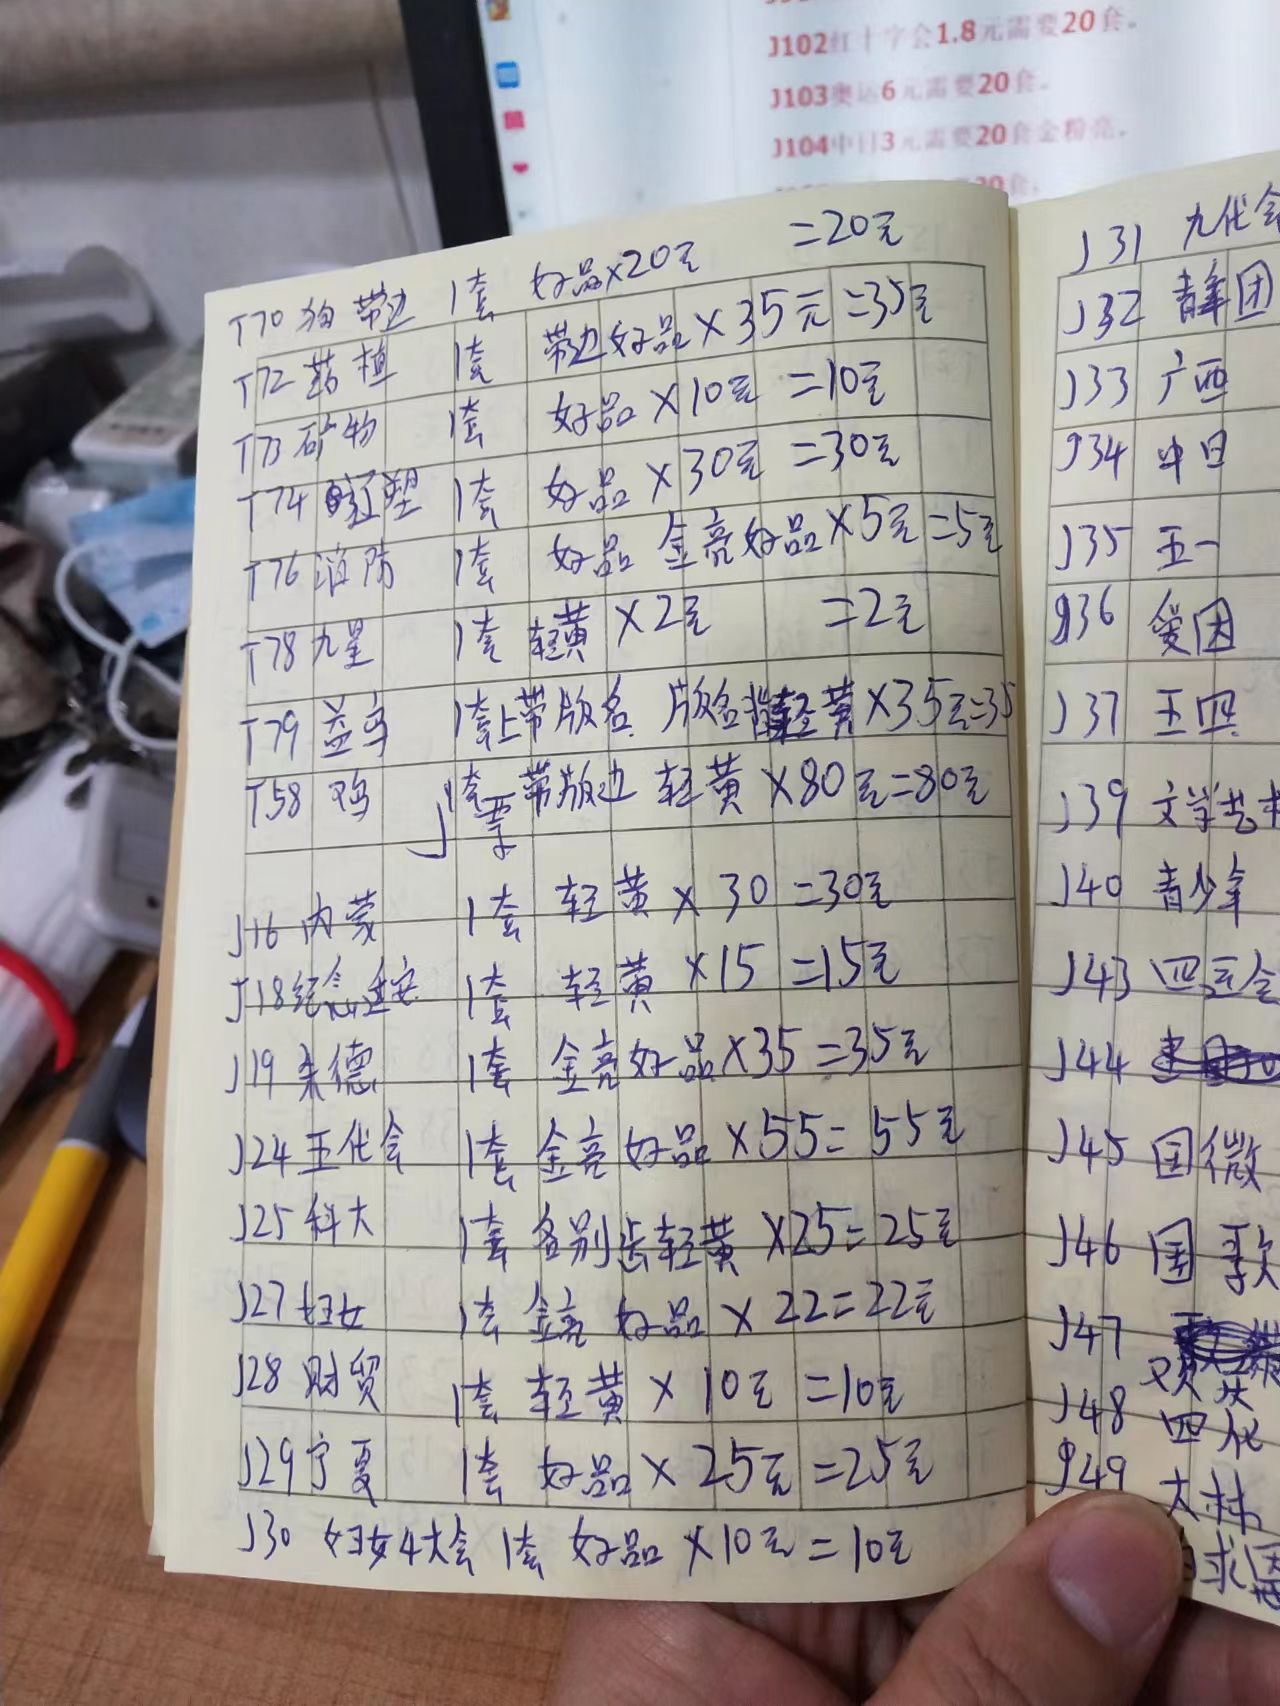 J102红十字会1.8元需要20套。
J103奥运6元需要20套。
J104中日3元需要20套金粉亮。
20套。
T70 狗 带边 1套 好品×20元 =20元
T72 药植 1套 带边好品×35元=35元
T73 矿物 1套 好品×10元 =10元
T74 红塑 1套 好品×30元 =30元
T76 消防 1套 好品 金亮好品×5元=5元
T78 九星 1套 轻黄×2元 =2元
T79 益鸟 1套上带版名 版名 轻黄×35元=35
T58 鸡 1套 带版边 轻黄×80元=80元
J票
J16 内蒙 1套 轻黄×30 =30元
J18纪念延安 1套 轻黄×15 =15元
J19 朱德 1套 金亮好品×35=35元
J24 五代会 1套 金亮好品×55=55元
J25 科大 1套 各别齿轻黄×25=25元
J27 妇女 1套 金亮 好品×22=22元
J28 财贸 1套 轻黄×10元 =10元
J29 宁夏 1套 好品×25元=25元
J30 妇女4大会 1套 好品×10元=10元
J31 九代会
J32 青年团
J33 广西
J34 中日
J35 五一
J36 爱因
J37 五四
J39 文学艺术
J40 青少年
J43 四运会
J44
J45 国徽
J46 国歌
J47
J48 四化
J49 大林
求恩